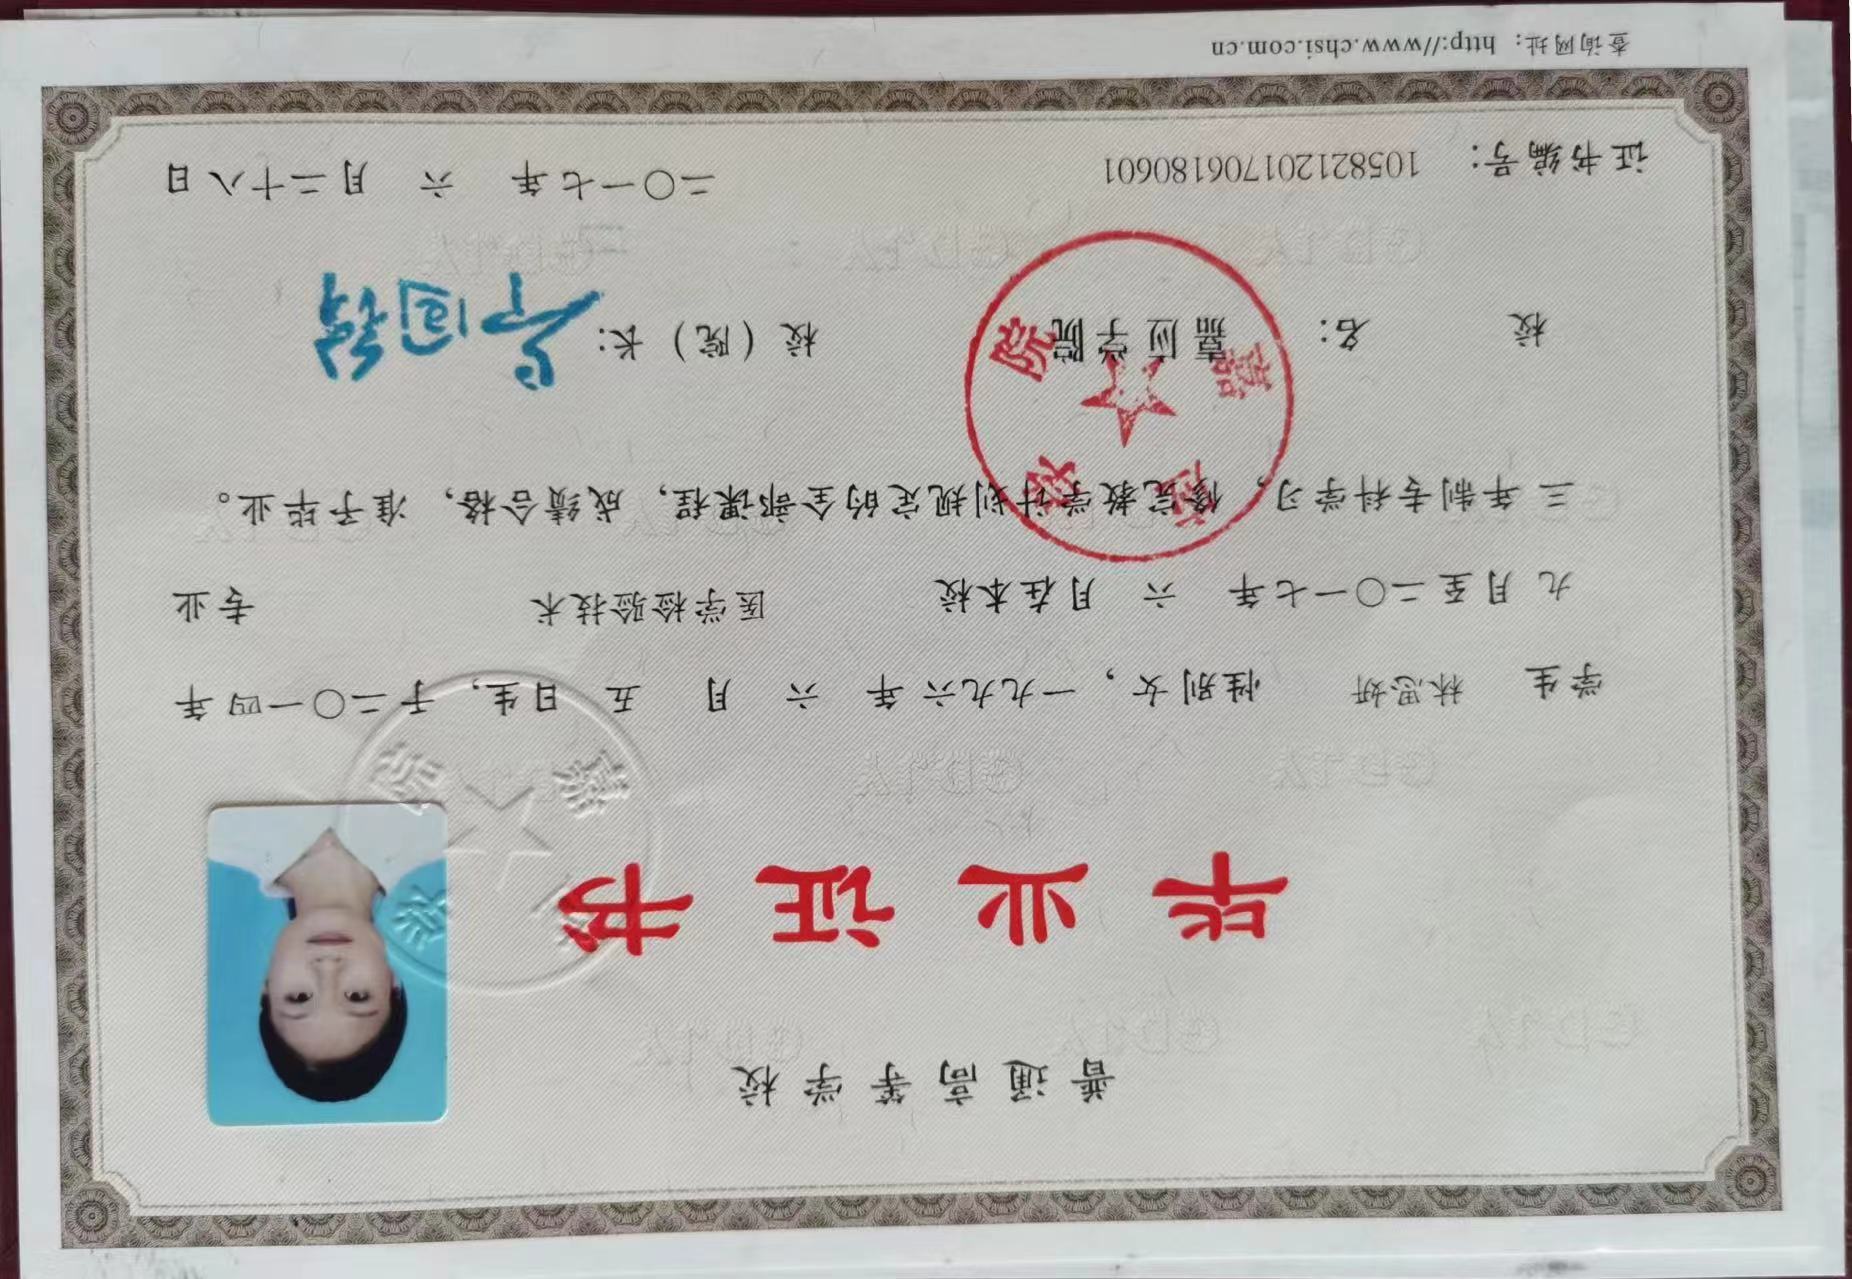 普通高等学校
毕业证书
学生 林思妍 性别女，一九九六年 六 月 五 日生，于二〇一四年
九月至二〇一七年 六 月在本校 医学检验技术 专业
三年制专科学习，修完教学计划规定的全部课程，成绩合格，准予毕业。
校 名： 嘉应学院 校（院）长：
证书编号： 105821201706180601 二〇一七年 六 月二十八日
查询网址：http://www.chsi.com.cn